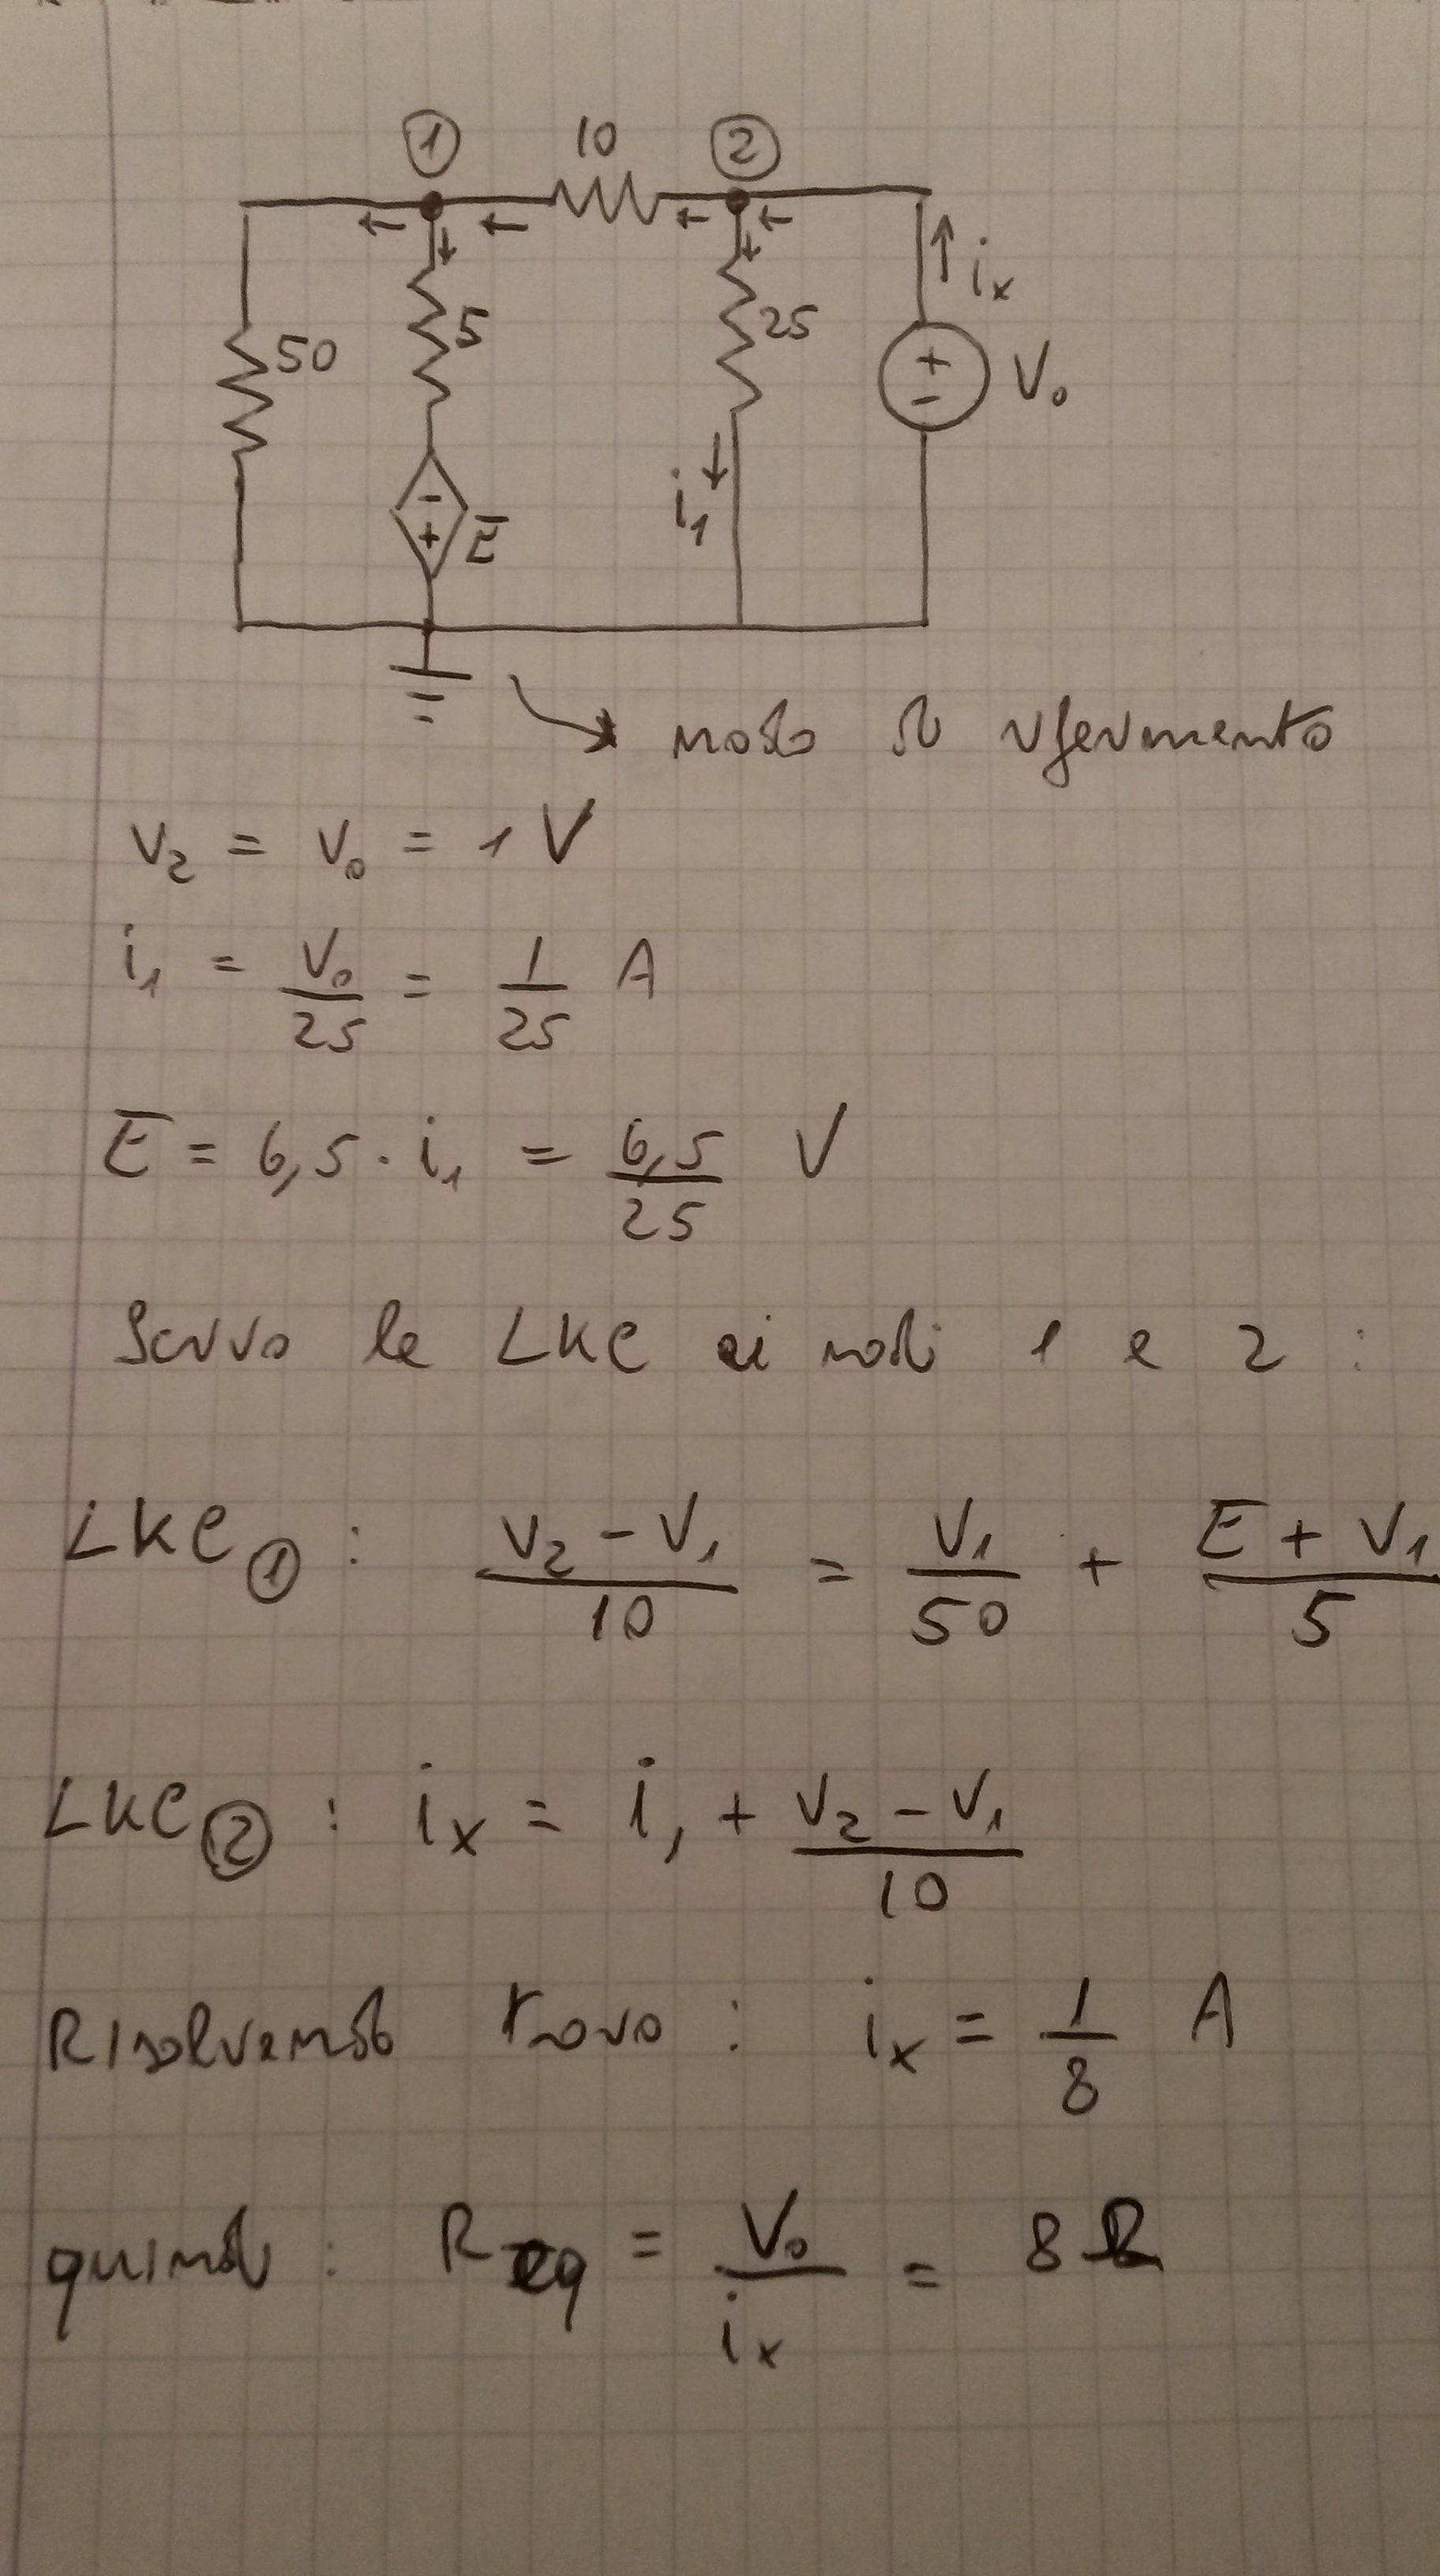 ① 10 ②
50 5 25 iₓ V₀
- + E i₁ + -
nodo di riferimento
V₂ = V₀ = 1 V
i₁ = V₀/25 = 1/25 A
E = 6,5 · i₁ = 6,5/25 V
Scrivo le LKC ai nodi 1 e 2 :
LKC① : (V₂ - V₁)/10 = V₁/50 + (E + V₁)/5
LKC② : iₓ = i₁ + (V₂ - V₁)/10
Risolvendo trovo : iₓ = 1/8 A
quindi : Req = V₀/iₓ = 8 Ω